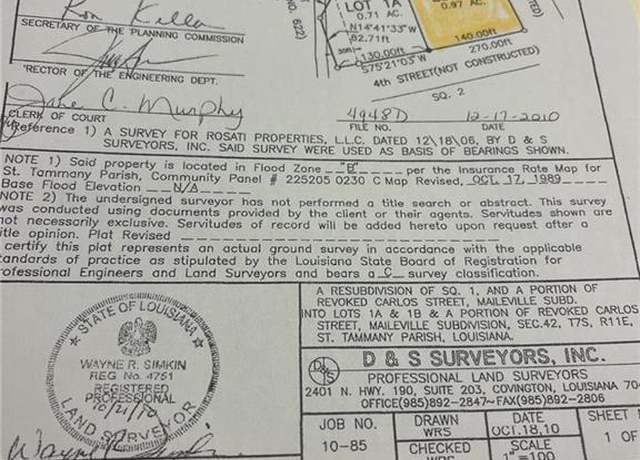 Ron Keller
SECRETARY OF THE PLANNING COMMISSION
RECTOR OF THE ENGINEERING DEPT.
Jane C. Murphy
CLERK OF COURT
NO. 622)
LOT 1A
0.71 AC.
N14°41'33"W
82.71ft
30ft
130.00ft
S75°21'03"W
0.97 AC.
140.00ft
270.00ft
4th STREET(NOT CONSTRUCTED)
SQ. 2
4948D
FILE NO.
12-17-2010
DATE
Reference 1) A SURVEY FOR ROSATI PROPERTIES, L.L.C. DATED 12\18\06, BY D & S
SURVEYORS, INC. SAID SURVEY WERE USED AS BASIS OF BEARINGS SHOWN.
NOTE 1) Said property is located in Flood Zone "B" per the Insurance Rate Map for
St. Tammany Parish, Community Panel # 225205 0230 C Map Revised, OCT. 17, 1989
Base Flood Elevation N/A
NOTE 2) The undersigned surveyor has not performed a title search or abstract. This survey
was conducted using documents provided by the client or their agents. Servitudes shown are
not necessarily exclusive. Servitudes of record will be added hereto upon request after a
title opinion. Plat Revised
certify this plat represents an actual ground survey in accordance with the applicable
tandards of practice as stipulated by the Louisiana State Board of Registration for
rofessional Engineers and Land Surveyors and bears a C survey classification.
STATE OF LOUISIANA
WAYNE R. SIMKIN
REG. No. 4751
REGISTERED
PROFESSIONAL
10/21/10
LAND SURVEYOR
Wayne R. Simkin
A RESUBDIVISION OF SQ. 1, AND A PORTION OF
REVOKED CARLOS STREET, MAILEVILLE SUBD.
INTO LOTS 1A & 1B & A PORTION OF REVOKED CARLOS
STREET, MAILEVILLE SUBDIVISION, SEC.42, T7S, R11E,
ST. TAMMANY PARISH, LOUISIANA.
D & S
D & S SURVEYORS, INC.
PROFESSIONAL LAND SURVEYORS
2401 N. HWY. 190, SUITE 203, COVINGTON, LOUISIANA 70
OFFICE(985)892-2847~FAX(985)892-2806
JOB NO.
10-85
DRAWN
WRS
CHECKED
WRS
DATE
OCT.18,10
SCALE
1"=100
SHEET
1 OF